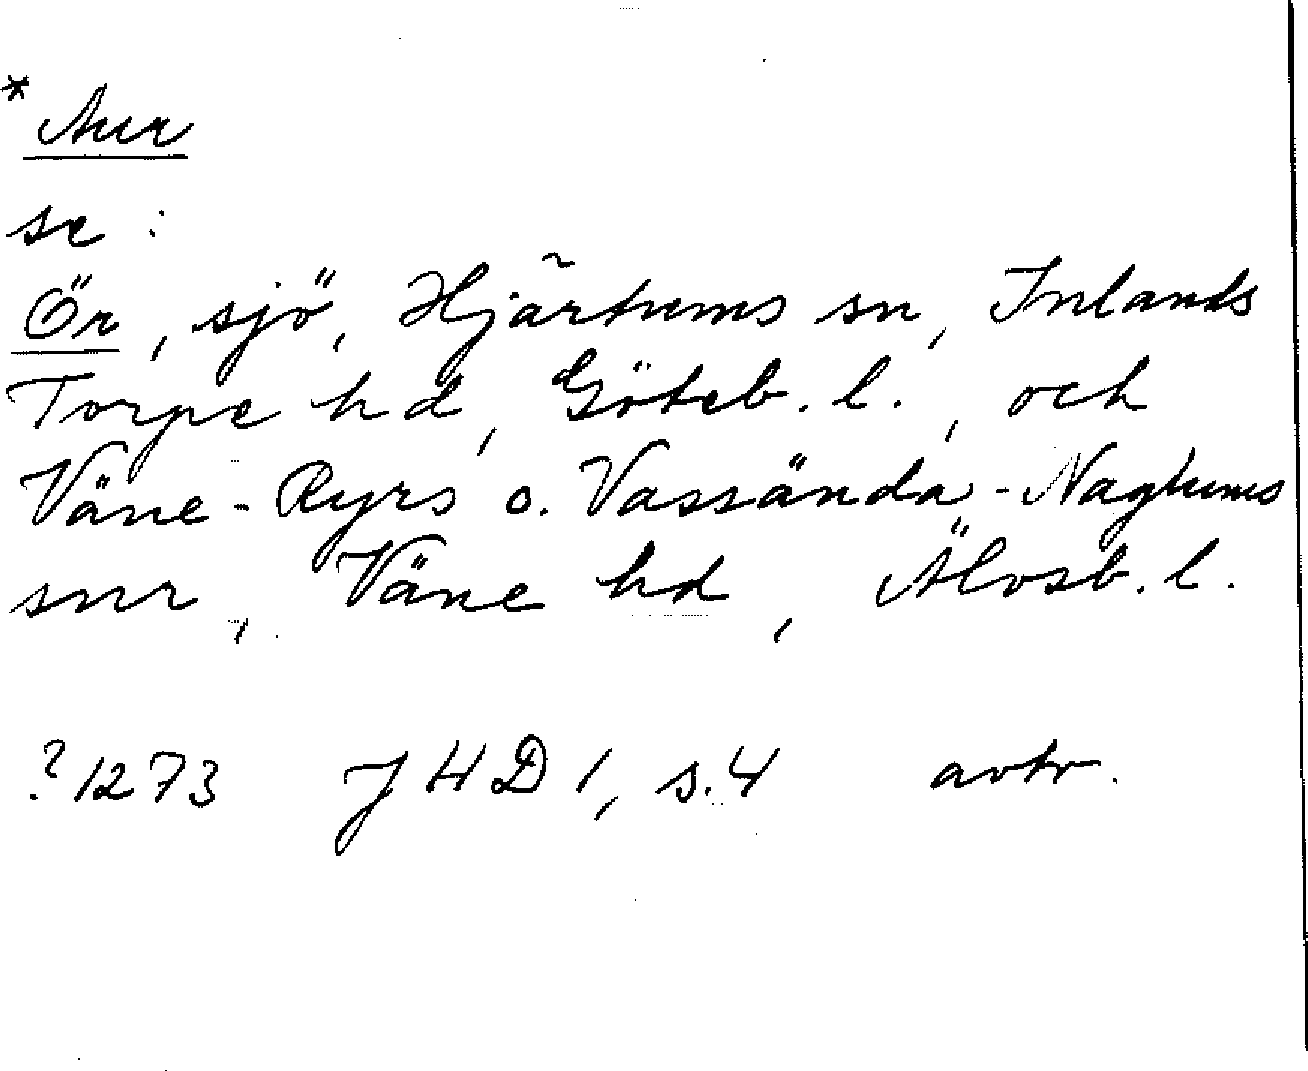 * Aur
se :
Ör, sjö, Hjärtums sn, Inlands
Torpe hd, Göteb. l., och
Väne-Ryrs o. Vassända-Naglums
snr, Väne hd, Älvsb. l.
? 1273 JHD 1, s. 4 avtr.